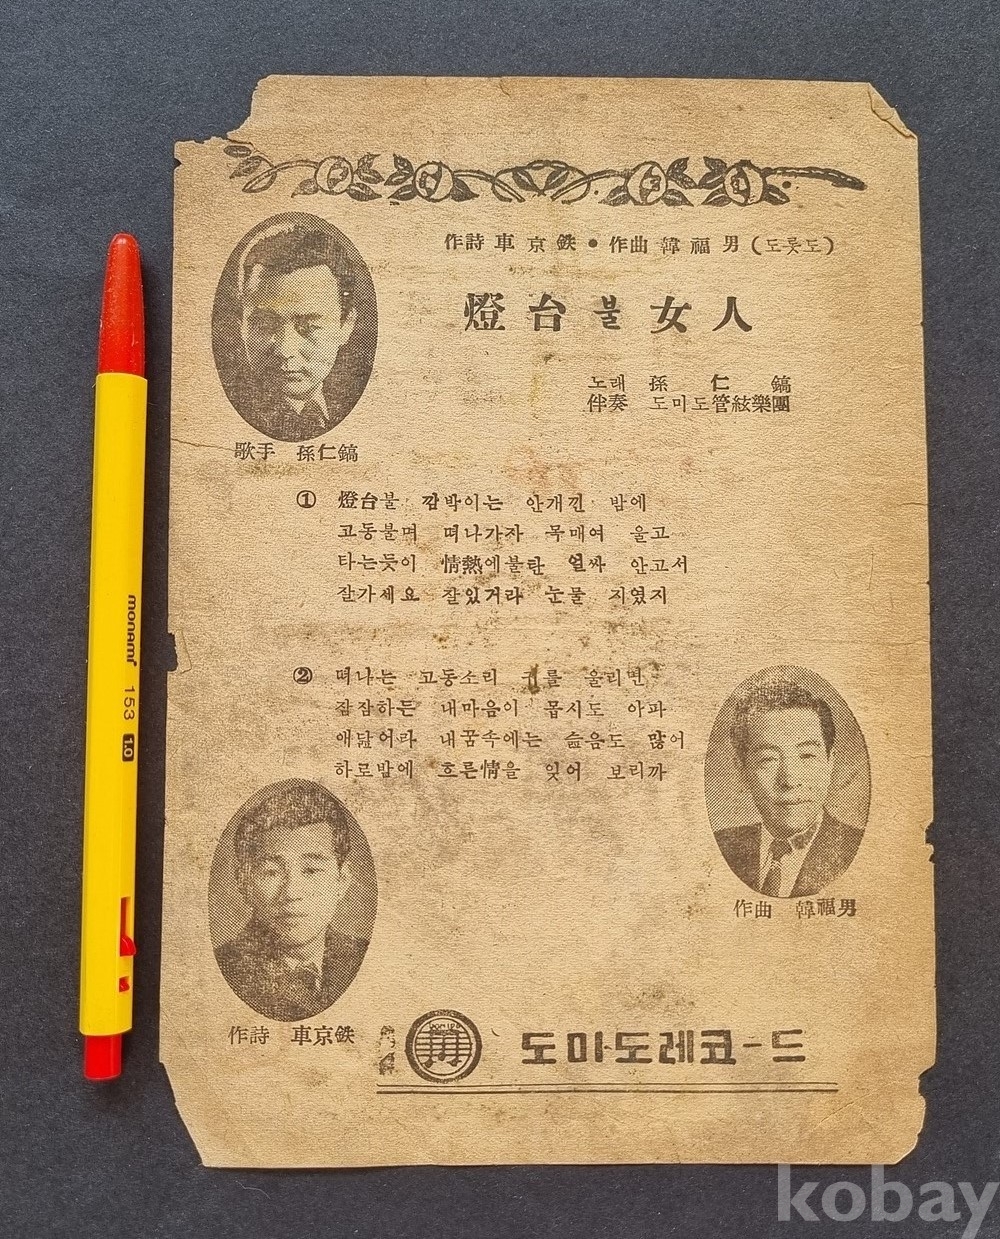 作詩 車京鉄 • 作曲 韓福男 (도롯도)
燈台불 女人
노래 孫仁鎬
伴奏 도미도管絃樂團
歌手 孫仁鎬
① 燈台불 깜박이는 안개낀 밤에
고동불며 떠나가자 목매여 울고
타는듯이 情熱에불란 열싸 안고서
잘가세요 잘있거라 눈물 지였지
② 떠나는 고동소리 를 울리면
잠잠하든 내마음이 몹시도 아파
애닲어라 내꿈속에는 슲음도 많어
하로밤에 흐른情을 잊어 보리까
作曲 韓福男
作詩 車京鉄
도미도레코-드
monami 153 1.0
kobay